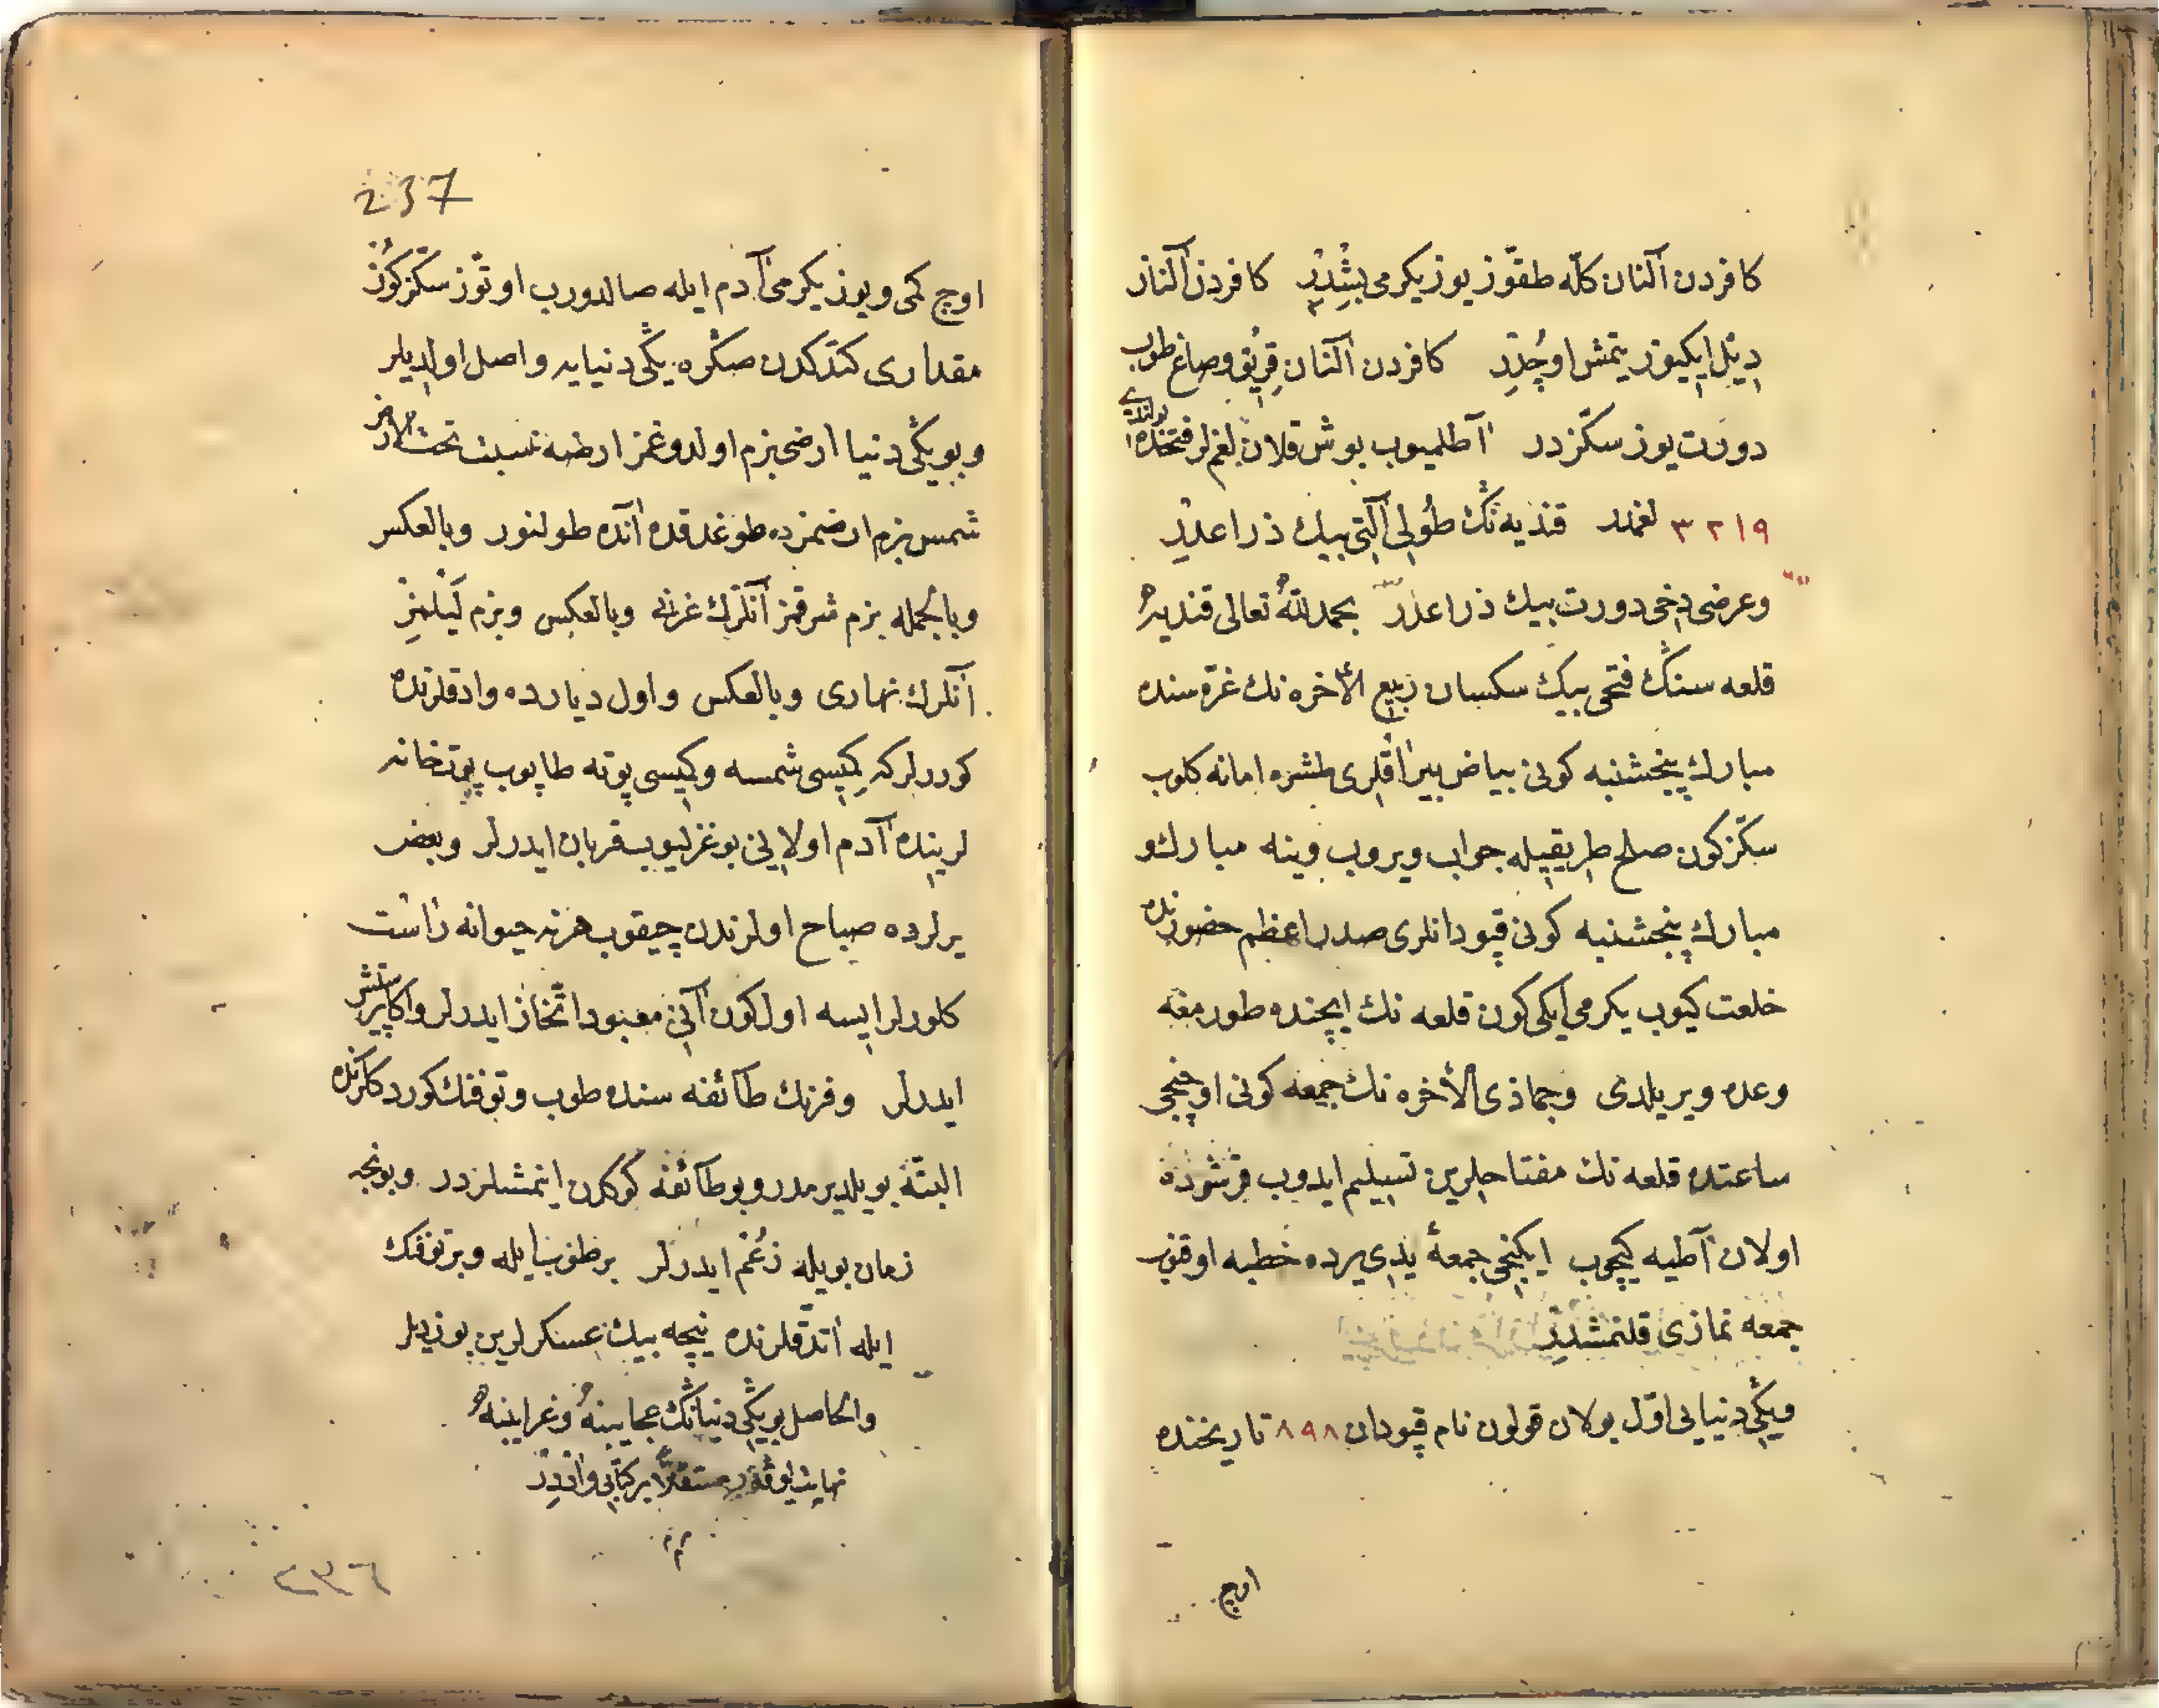 كافردن آلنان كلّه طقوّز يوز يكرمى بشدر كافردن آلنان
ديل ايكيوز يتمش اوچدر كافردن آلنان قريق وصاغ طوب
دورت يوز سكّزدر آطلميوب بوش قلان لغملر فتحنده بولندى
٣٢١٩ لغمدر قنديه نڭ طولى آلتى بيك ذراعدر
وعرضى دخى دورت بيك ذراعدر بحمد الله تعالى قنديه
قلعه سنڭ فتحى بيك سكسان ربيع الأخره نك غرّه سنده
مبارك پنجشنبه كونى بياض بيراقلرى طشره امانه كلوب
سكّز كون صلح طريقيله جواب ويروب وينه مبارك و
مبارك پنجشنبه كونى قپودانلرى صدر اعظم حضورنده
خلعت كيوب يكرمى ايكى كون قلعه نك ايچنده طورمغه
وعده ويريلدى وجماذى الأخره نك جمعه كونى اوچنجى
ساعتده قلعه نك مفتاحلرين تسيليم ايدوب قرشوده
اولان آطيه كيچوب ايكنجى جمعهٔ يدى يرده خطبه اوقنوب
جمعه نمازى قلنمشدر
ويڭى دنيايى اوّل بولان قولون نام قپودان ٨٩٨ تاريخنده
اوچ
237
اوچ كمى ويوز يكرمى آدم ايله صالدورب اوتوّز سكّز كوّن
مقدارى كتدكدن صڭره يڭى دنيايه واصل اولديلر
وبو يڭى دنيا ارضى بزم اولدوغمز ارضه نسبت تحت الارض
شمس بزم ارضمزده طوغدقده آنده طولنور وبالعكس
وبالجمله بزم شرقمز آنلرك غربى وبالعكس وبزم ليلمز
آنلرك نهارى وبالعكس واول ديارده وادقلرنده
كوردلر كه كيسى شمسه وكيسى پوته طاپوب پوتخانه
لرينده آدم اولاينى بوغزليوب قربان ايدرلر وبعض
يرلرده صباح اولرندن چيقوب هرنه حيوانه راست
كلورلر ايسه اول كون آنى معبود اتّخاز ايدرلر واكا پرستش
ايدرلر وفرنك طائفه سنده طوب وتوفنك كوردكلرنده
البتّه بو يلديرمدر وبو طائفه كوكدن اينمشلردر وبونجه
زمان بويله زعم ايدرلر بر طوب ايله وبر توفنك
ايله اتدقلرنده نيچه بيك عسكرلرين بوزديلر
والحاصل بو يڭى دنيانڭ عجايبنه وغرايبنه
نهايت يوقدر مستقلّا بر كتابى واردر
م
٢٣٦